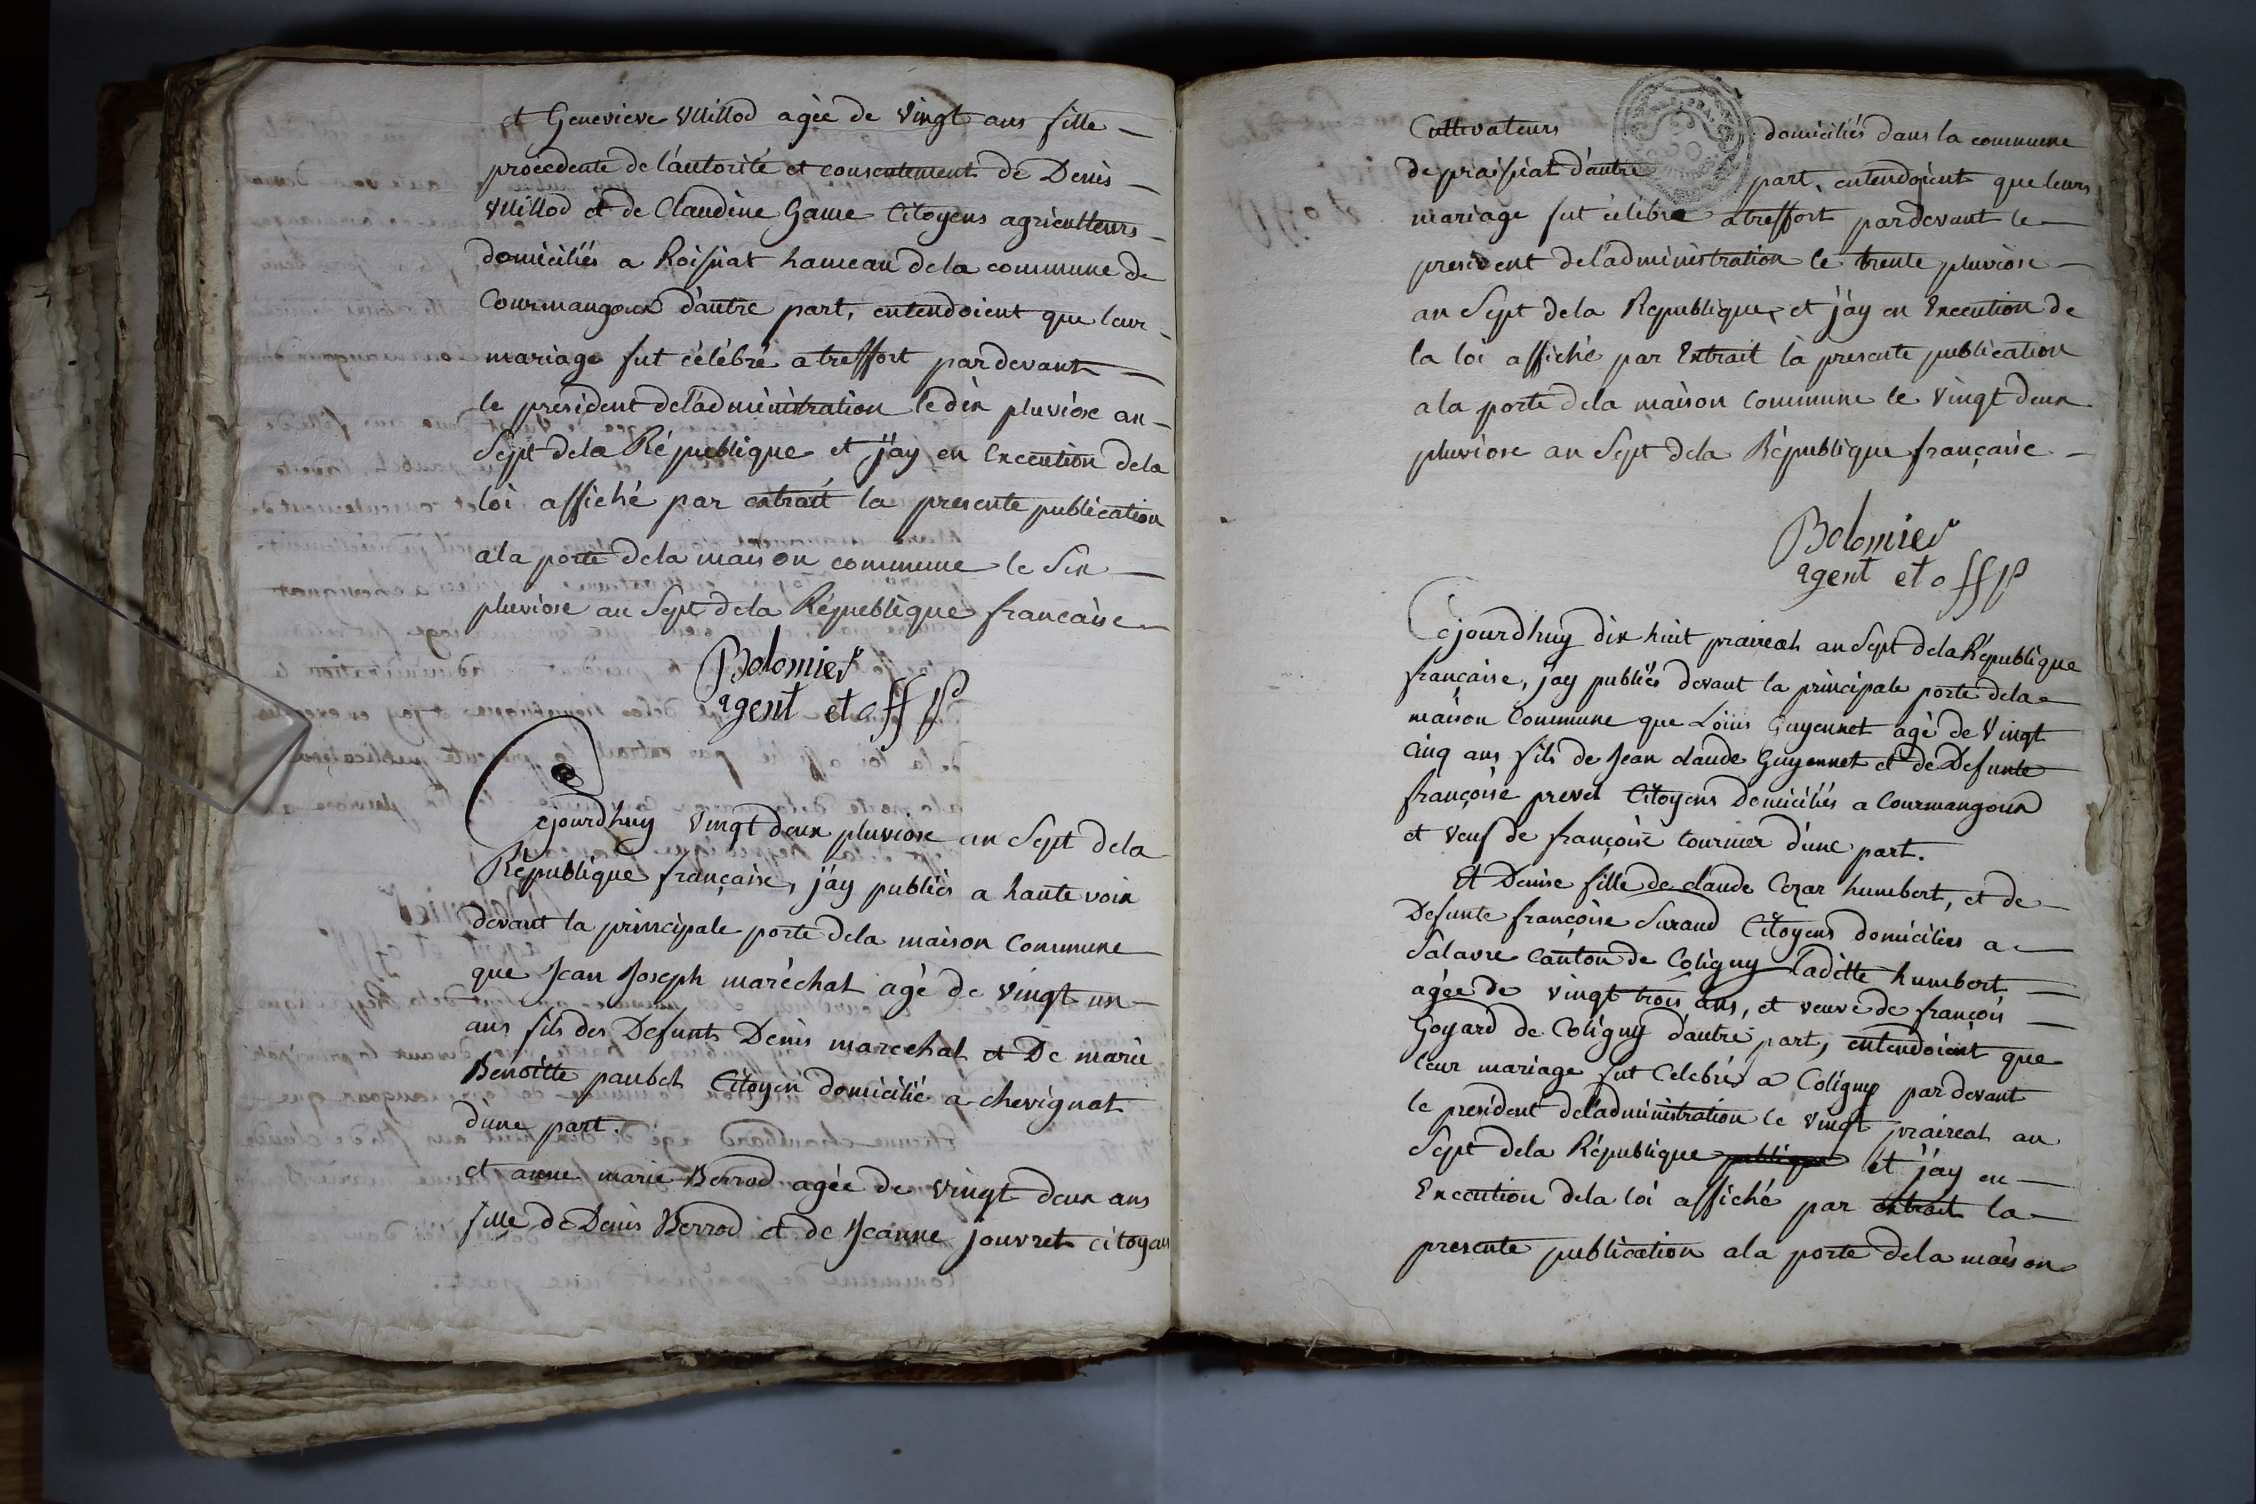 et Genevieve Vuillod agée de vingt ans fille
procedente de l'autorité et consentement de Denis
Vuillod et de Claudine Game Citoyens agriculteurs
domiciliés a Roisiat hameau dela commune de
Courmangoux d'autre part, entendoient que leur
mariage fut célébré a treffort pardevant
le président del'administration le dix pluviose an
Sept dela République et j'ay en Execution dela
loi affiché par extrait la presente publication
ala porte dela maison commune le Six
pluviose an Sept dela République francaise
Bolomier
agent et off p
Cejourdhuy vingt deux pluviose an Sept dela
République française, j'ay publiés a haute voix
devant la principale porte dela maison Commune
que Jean Joseph maréchal agé de vingt un
ans fils des Defunts Denis marechal et De marie
Benoitte paubel Citoyen domicilié a chevignat
d'une part.
et anne marie Berrod agée de vingt deux ans
fille de Denis Berrod et de Jeanne jouvret citoyens
Cultivateurs domiciliés dans la commune
de praisiat d'autre part, entendoient que leurs
mariage fut célébre a treffort pardevant le
president del'administration le trente pluviose
an Sept dela Republique, et j'ay en Execution de
la loi affiché par Extrait la presente publication
ala porte dela maison Commune le vingt deux
pluviose an Sept dela République française
Bolomier
agent et off p
Cejourdhuy dix huit praireal an Sept dela République
française, j'ay publiés devant la principale porte dela
maison Commune que Louis Guyennet agé de Vingt
Cinq ans fils de Jean claude Guyennet et de Defunte
françoise prevel Citoyens Domiciliés a Courmangoux
et veuf de françoise tournier d'une part.
Et Denise fille de claude Cezar humbert, et de
Defunte françoise Suraud Citoyens domiciliés a
Salavre canton de Coligny laditte humbert
agée de vingt trois ans, et veuve de françois
Goyard de Coligny d'autre part, entendoient que
leur mariage fut Celebrés a Coligny pardevant
le president del'administration le vingt praireal an
Sept dela République publique et j'ay en
Execution dela loi affiché par extrait la
presente publication ala porte dela maison